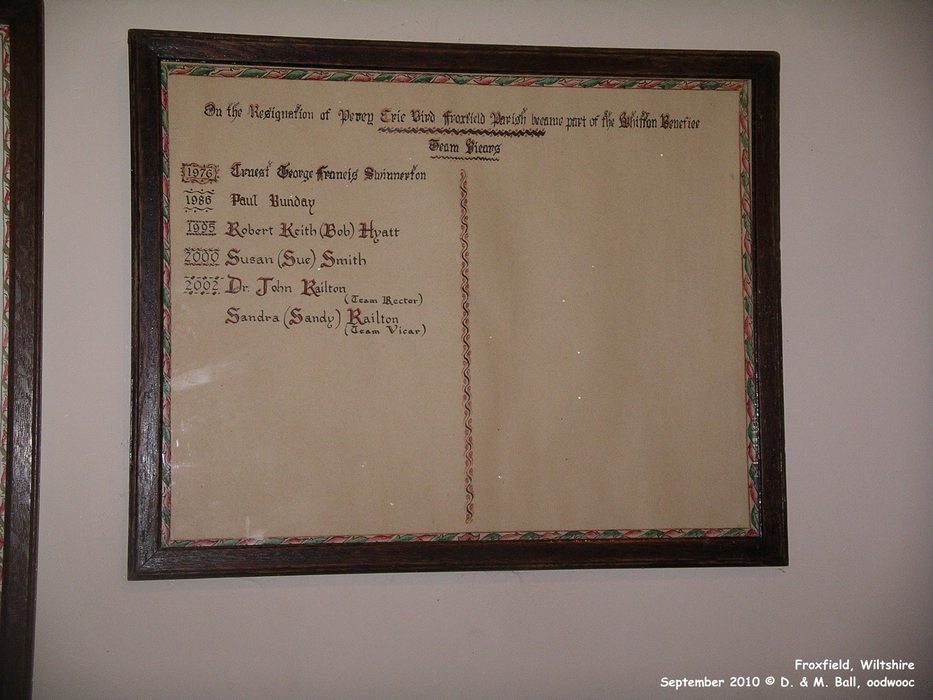 On the Resignation of Percy Eric Bird Froxfield Parish became part of the Whitton Benefice
Team Vicars
1976 Ernest George Francis Swinnerton
1986 Paul Bunday
1995 Robert Keith (Bob) Hyatt
2000 Susan (Sue) Smith
2002 Dr. John Railton
(Team Rector)
Sandra (Sandy) Railton
(Team Vicar)
Froxfield, Wiltshire
September 2010 © D. & M. Ball, oodwooc